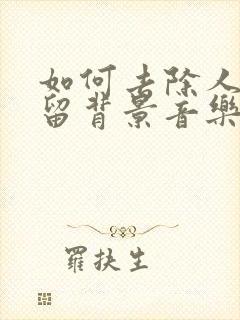 如何去除人
留背景音樂
羅扶生